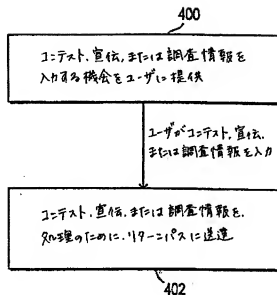 400
コンテスト、宣伝、または調査情報を
入力する機会をユーザに提供
ユーザがコンテスト、宣伝、
または調査情報を入力
コンテスト、宣伝、または調査情報を、
処理のために、リターンパスに送達
402